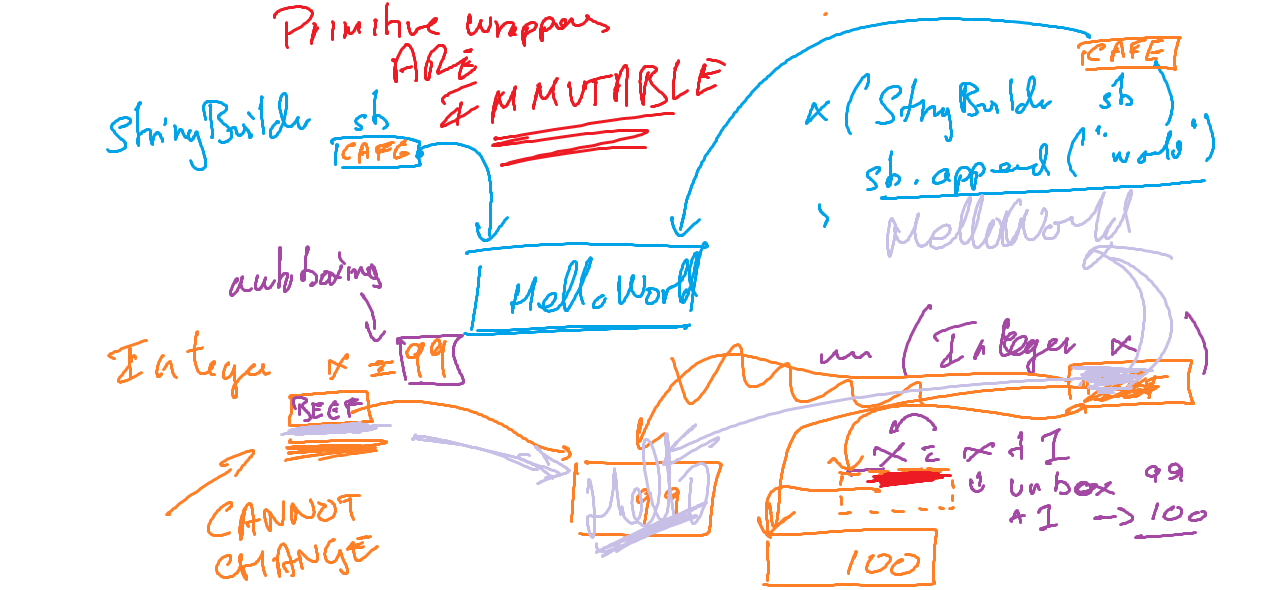 Primitive wrappers
ARE
IMMUTABLE
StringBuilder sb
CAFE
CAFE
(StringBuilder sb)
sb.append("world")
HelloWorld
HelloWorld
autoboxing
Integer x = 99
BEEF
CANNOT
CHANGE
Hello
99
(Integer x)
x = x + 1
unbox 99
+1 -> 100
100